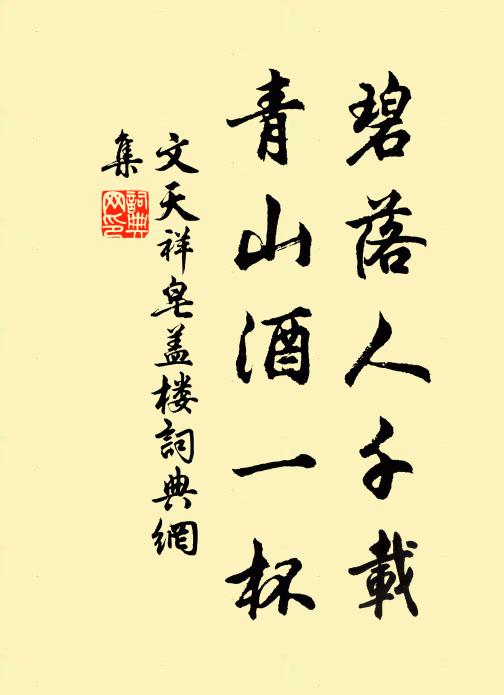 碧落人千載
青山酒一杯
文天祥皂蓋楼詞典網
集
詞典网印